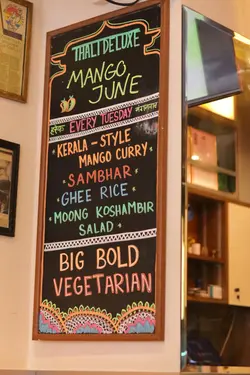 THALI DELUXE
MANGO
JUNE
EVERY TUESDAY
KERALA-STYLE
MANGO CURRY
SAMBHAR
GHEE RICE
MOONG KOSHAMBIR
SALAD
BIG BOLD
VEGETARIAN